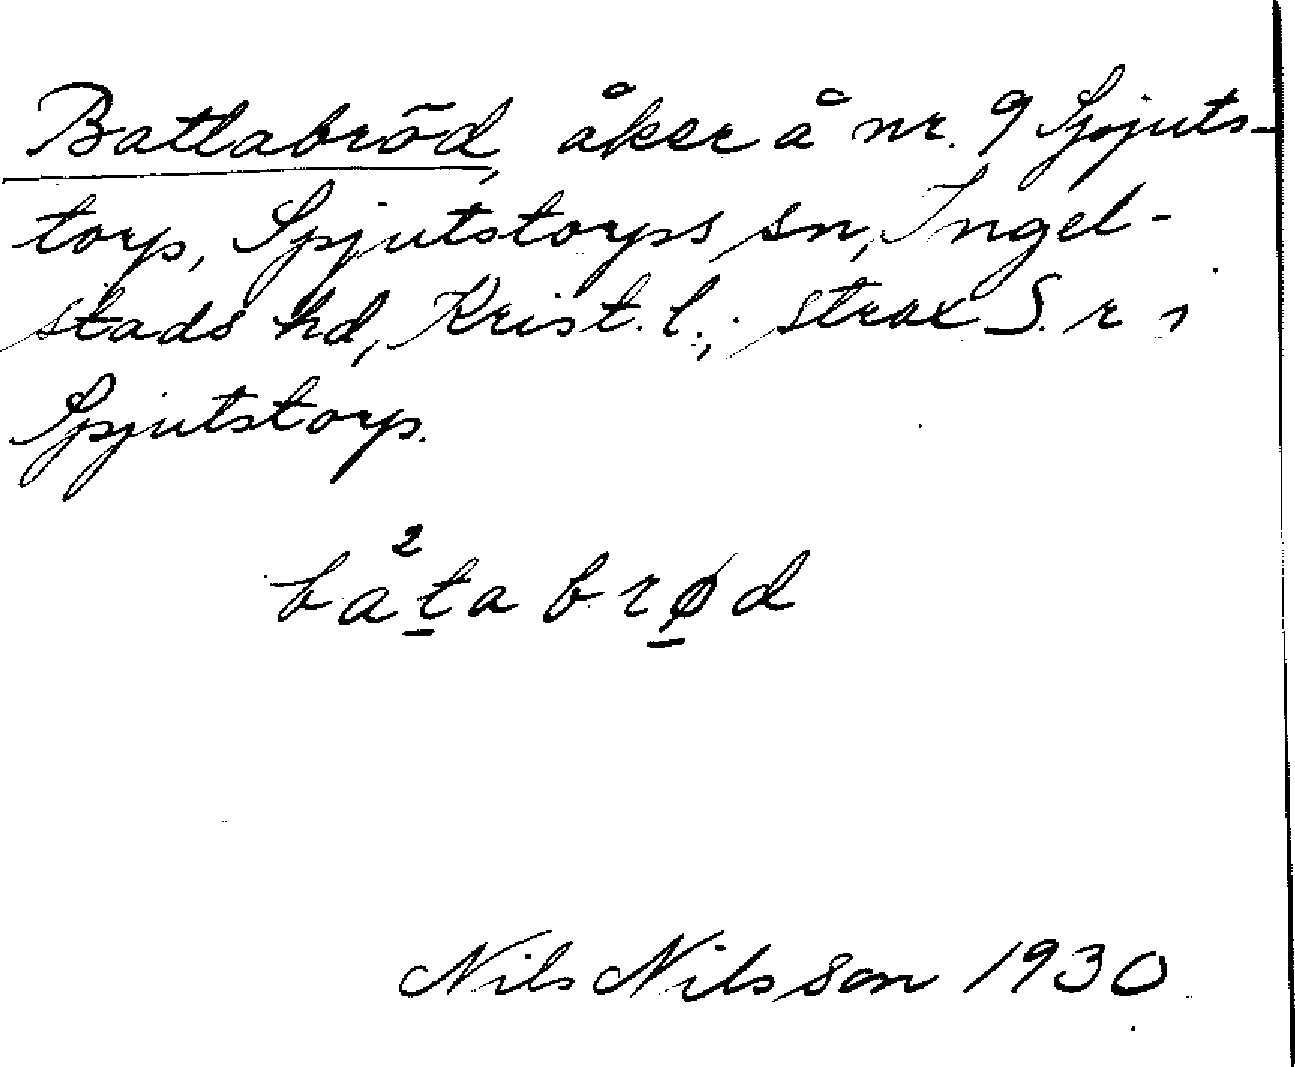 Batlabröd, åker å nr. 9 Spjuts-
torp, Spjutstorps sn, Ingel-
stads hd, Krist. l.; strax S. r i
Spjutstorp.
ba²ta brød
Nils Nilsson 1930